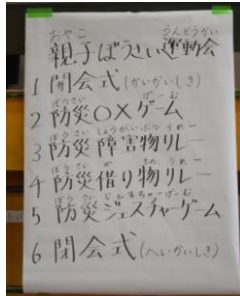 おやこ うんどうかい
親子ぼうさい運動会
1 開会式(かいかいしき)
ぼうさい げーむ
2 防災○×ゲーム
ぼうさい しょうがいぶつ りれー
3 防災障害物リレー
ぼうさい か もの りれー
4 防災借り物リレー
ぼうさい じぇすちゃーげーむ
5 防災ジェスチャーゲーム
6 閉会式(へいかいしき)